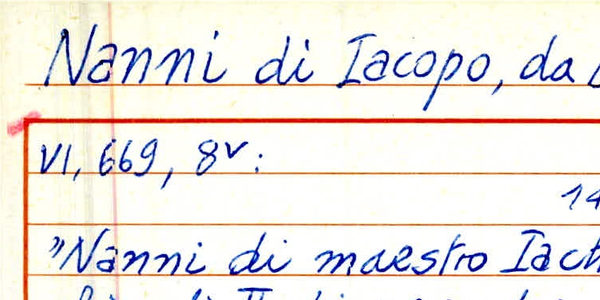 Nanni di Iacopo, da
VI, 669, 8v:
14
"Nanni di maestro Iach